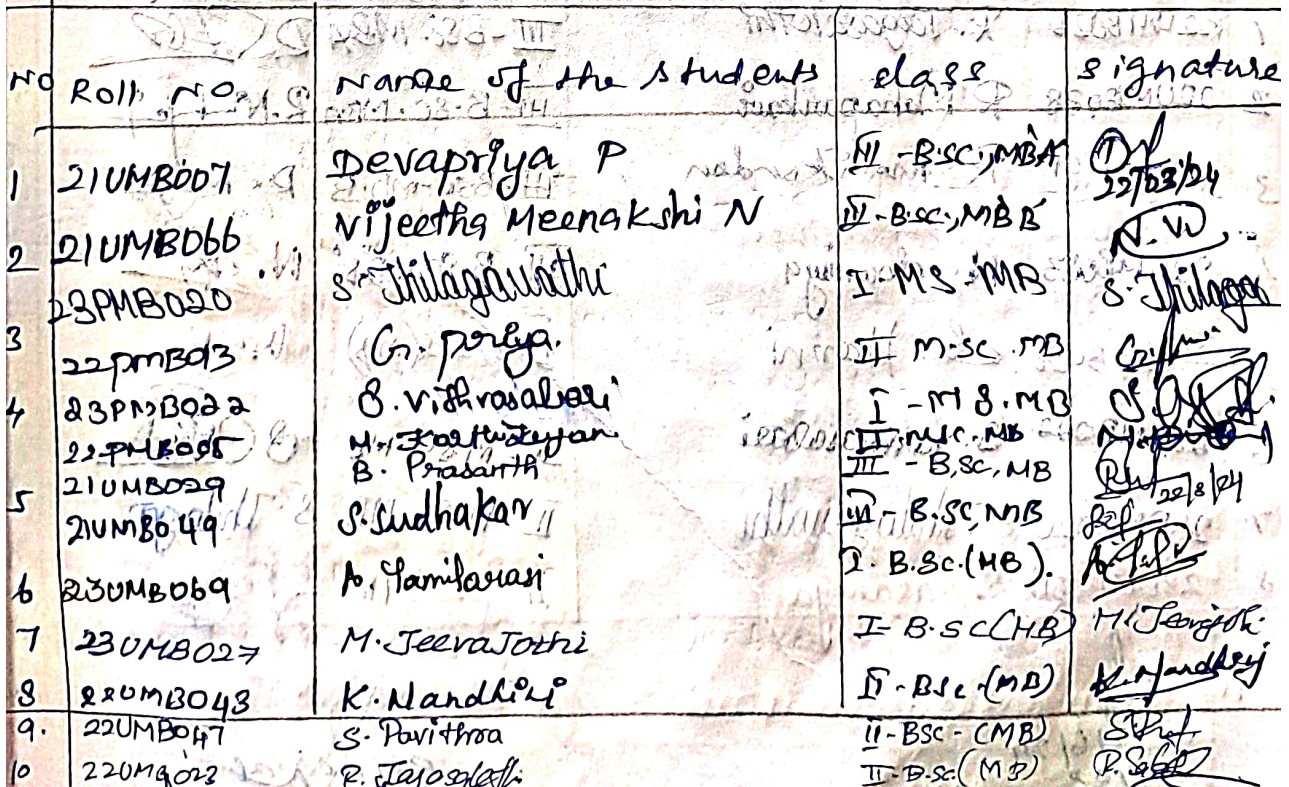 NO Roll NO. Name of the students class signature
1 21UMB007 Devapriya P III - B.SC., MB 'A' 22/03/24
2 21UMB066 Vijeetha Meenakshi N III - B.sc., MB 'B' N. Vi
23PMB020 S. Thilagavathi I - MS - MB S. Thilaga
3 22PMB013 G. Priya. II M.SC. MB
4 23PMB022 S. I - M S. MB
22PMB005 M. Karthikeyan II M.SC. MB
21UMB029 B. Prasanth III - B.SC, MB 22/8/24
5 21UMB049 S. Sudhakar III - B.SC, MB
6 23UMB069 A. Tamilarasi I. B.Sc. (MB).
7 23UMB027 M. JeevaJothi I - B.SC (MB) M. Jeevajothi
8 22UMB043 K. Nandhini II - BSc - (MB) K. Nandhini
9. 22UMB047 S. Pavithra II - BSC - (MB)
10 R. II - B.Sc. (MB)